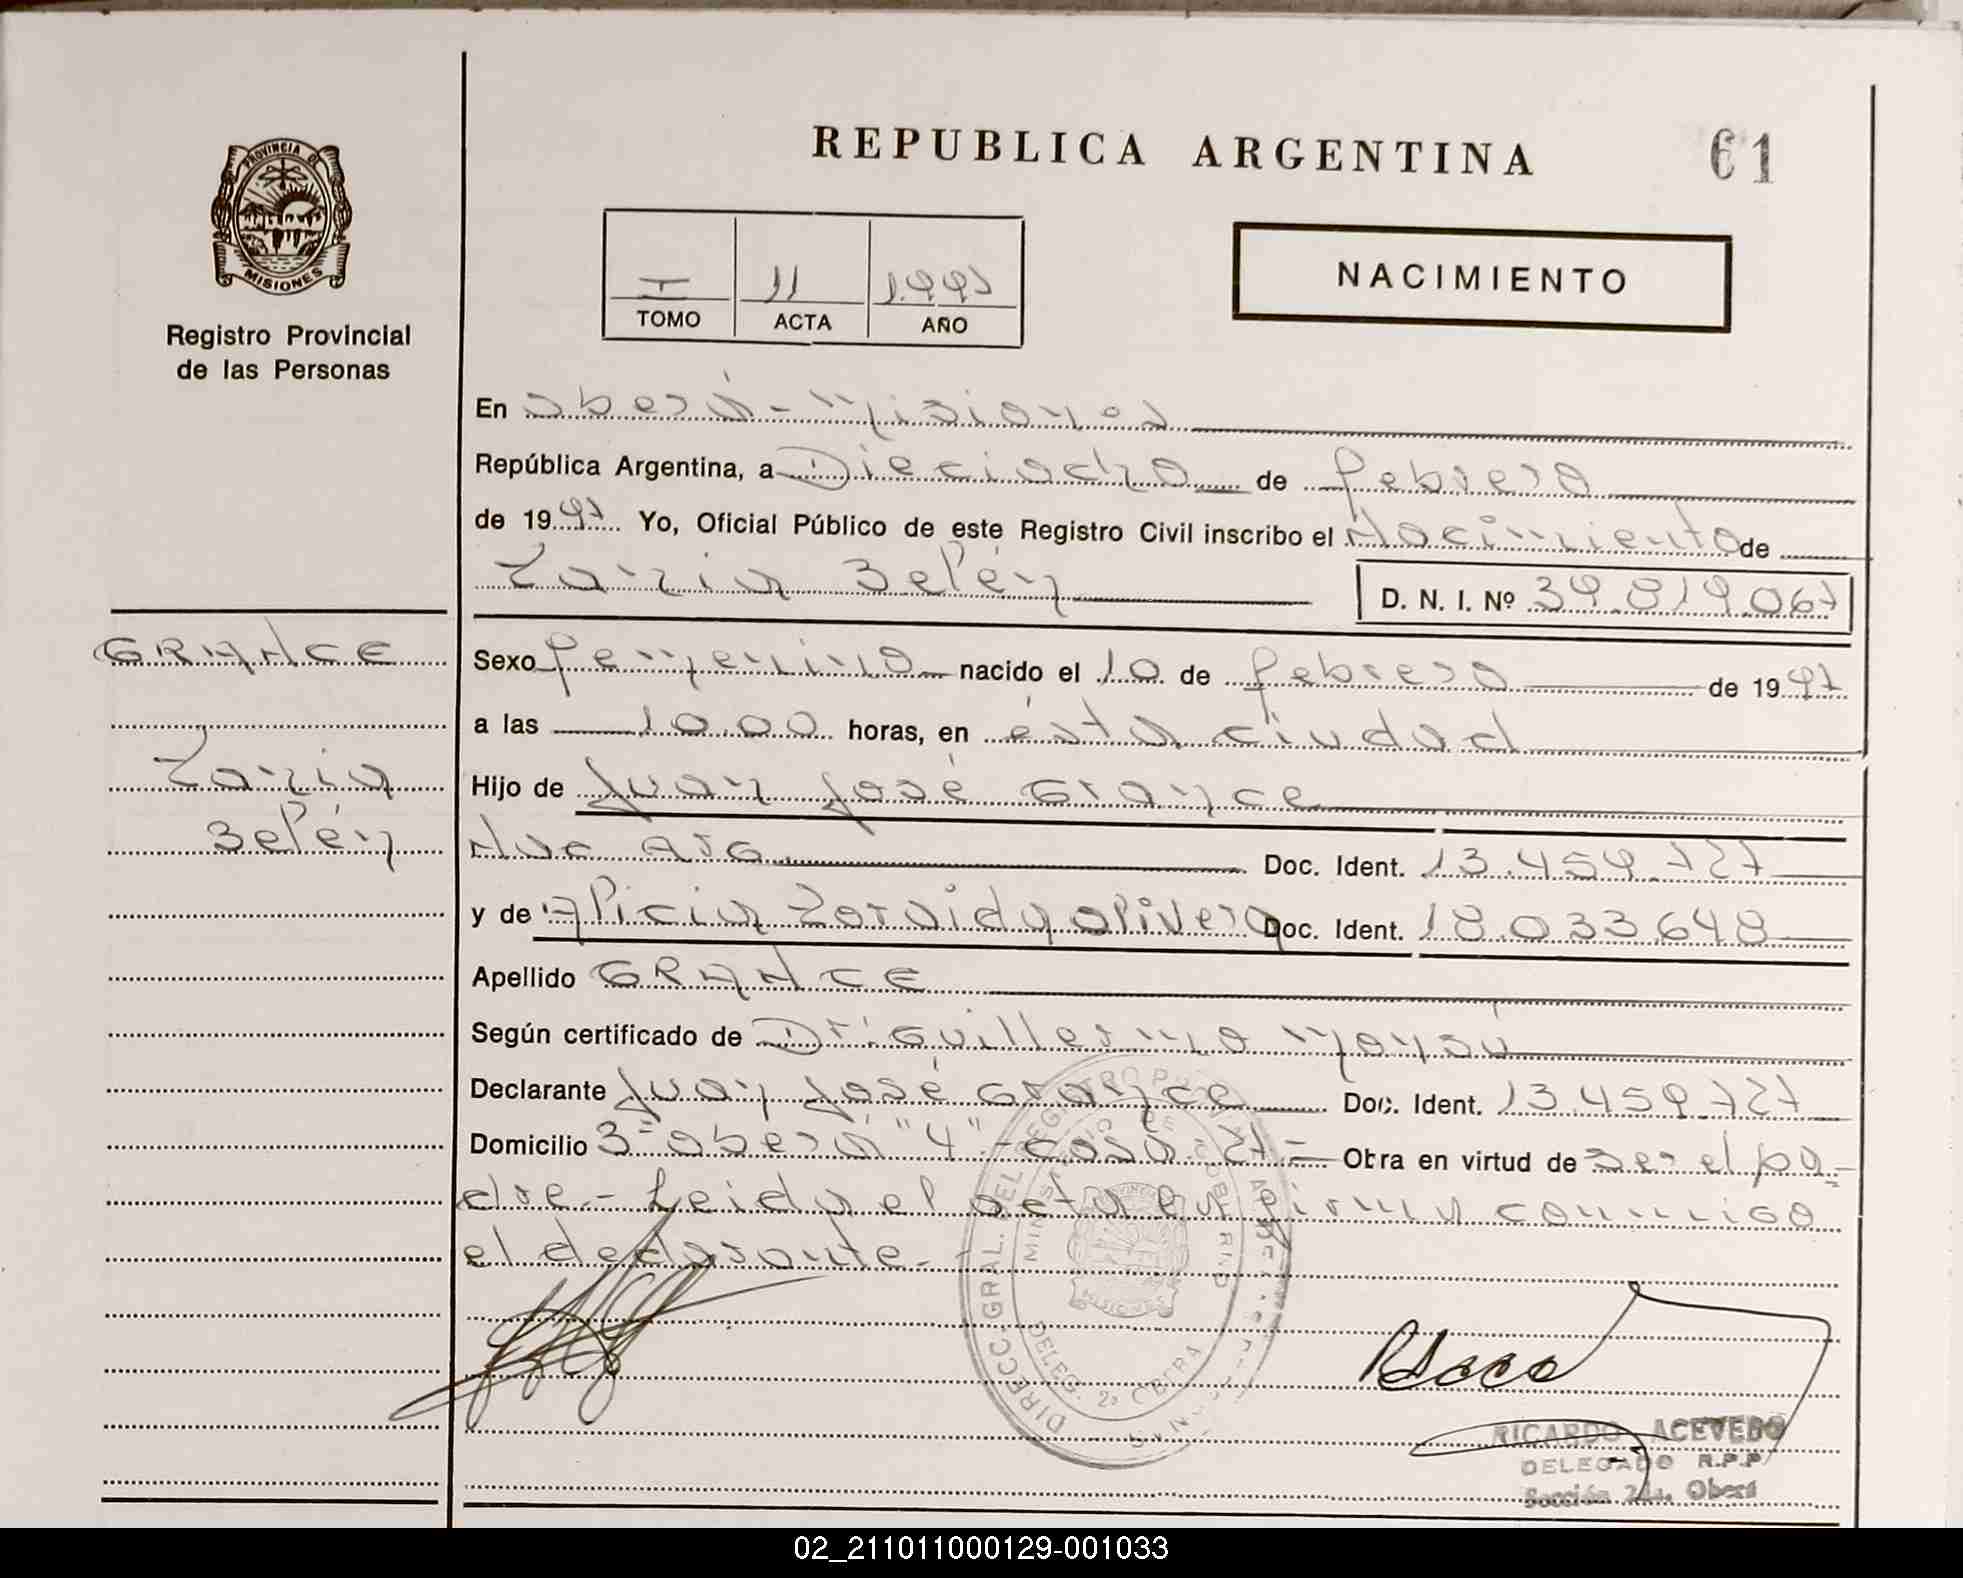 REPUBLICA ARGENTINA
61
PROVINCIA D
MISIONES
Registro Provincial
de las Personas
I 11 1.997
TOMO ACTA AÑO
NACIMIENTO
En Oberá - Misiones
República Argentina, a Dieciocho de febrero
de 1997 Yo, Oficial Público de este Registro Civil inscribo el Nacimiento de
Belén D. N. I. Nº 39.819.067
GRANCE
Belén
Sexo femenino nacido el 10 de febrero de 1997
a las 10.00 horas, en ésta ciudad
Hijo de Juan José Grance
Doc. Ident. 13.459.727
y de Alicia Zoraida Olivera Doc. Ident. 18.033.648
Apellido GRANCE
Según certificado de Dr. Guillermo
Declarante Juan José Grance Doc. Ident. 13.459.727
Domicilio 3º Oberá "4" - casa 27 - Obra en virtud de ser el pa-
dre.- Leida el acta en firma conmigo
el declarante.-
DIRECC. GRAL. DEL REGISTRO
DELEG. 2ª OBERA
MISIONES
RICARDO ACEVEDO
DELEGADO R.P.P
Sección 2da. Oberá
02_211011000129-001033